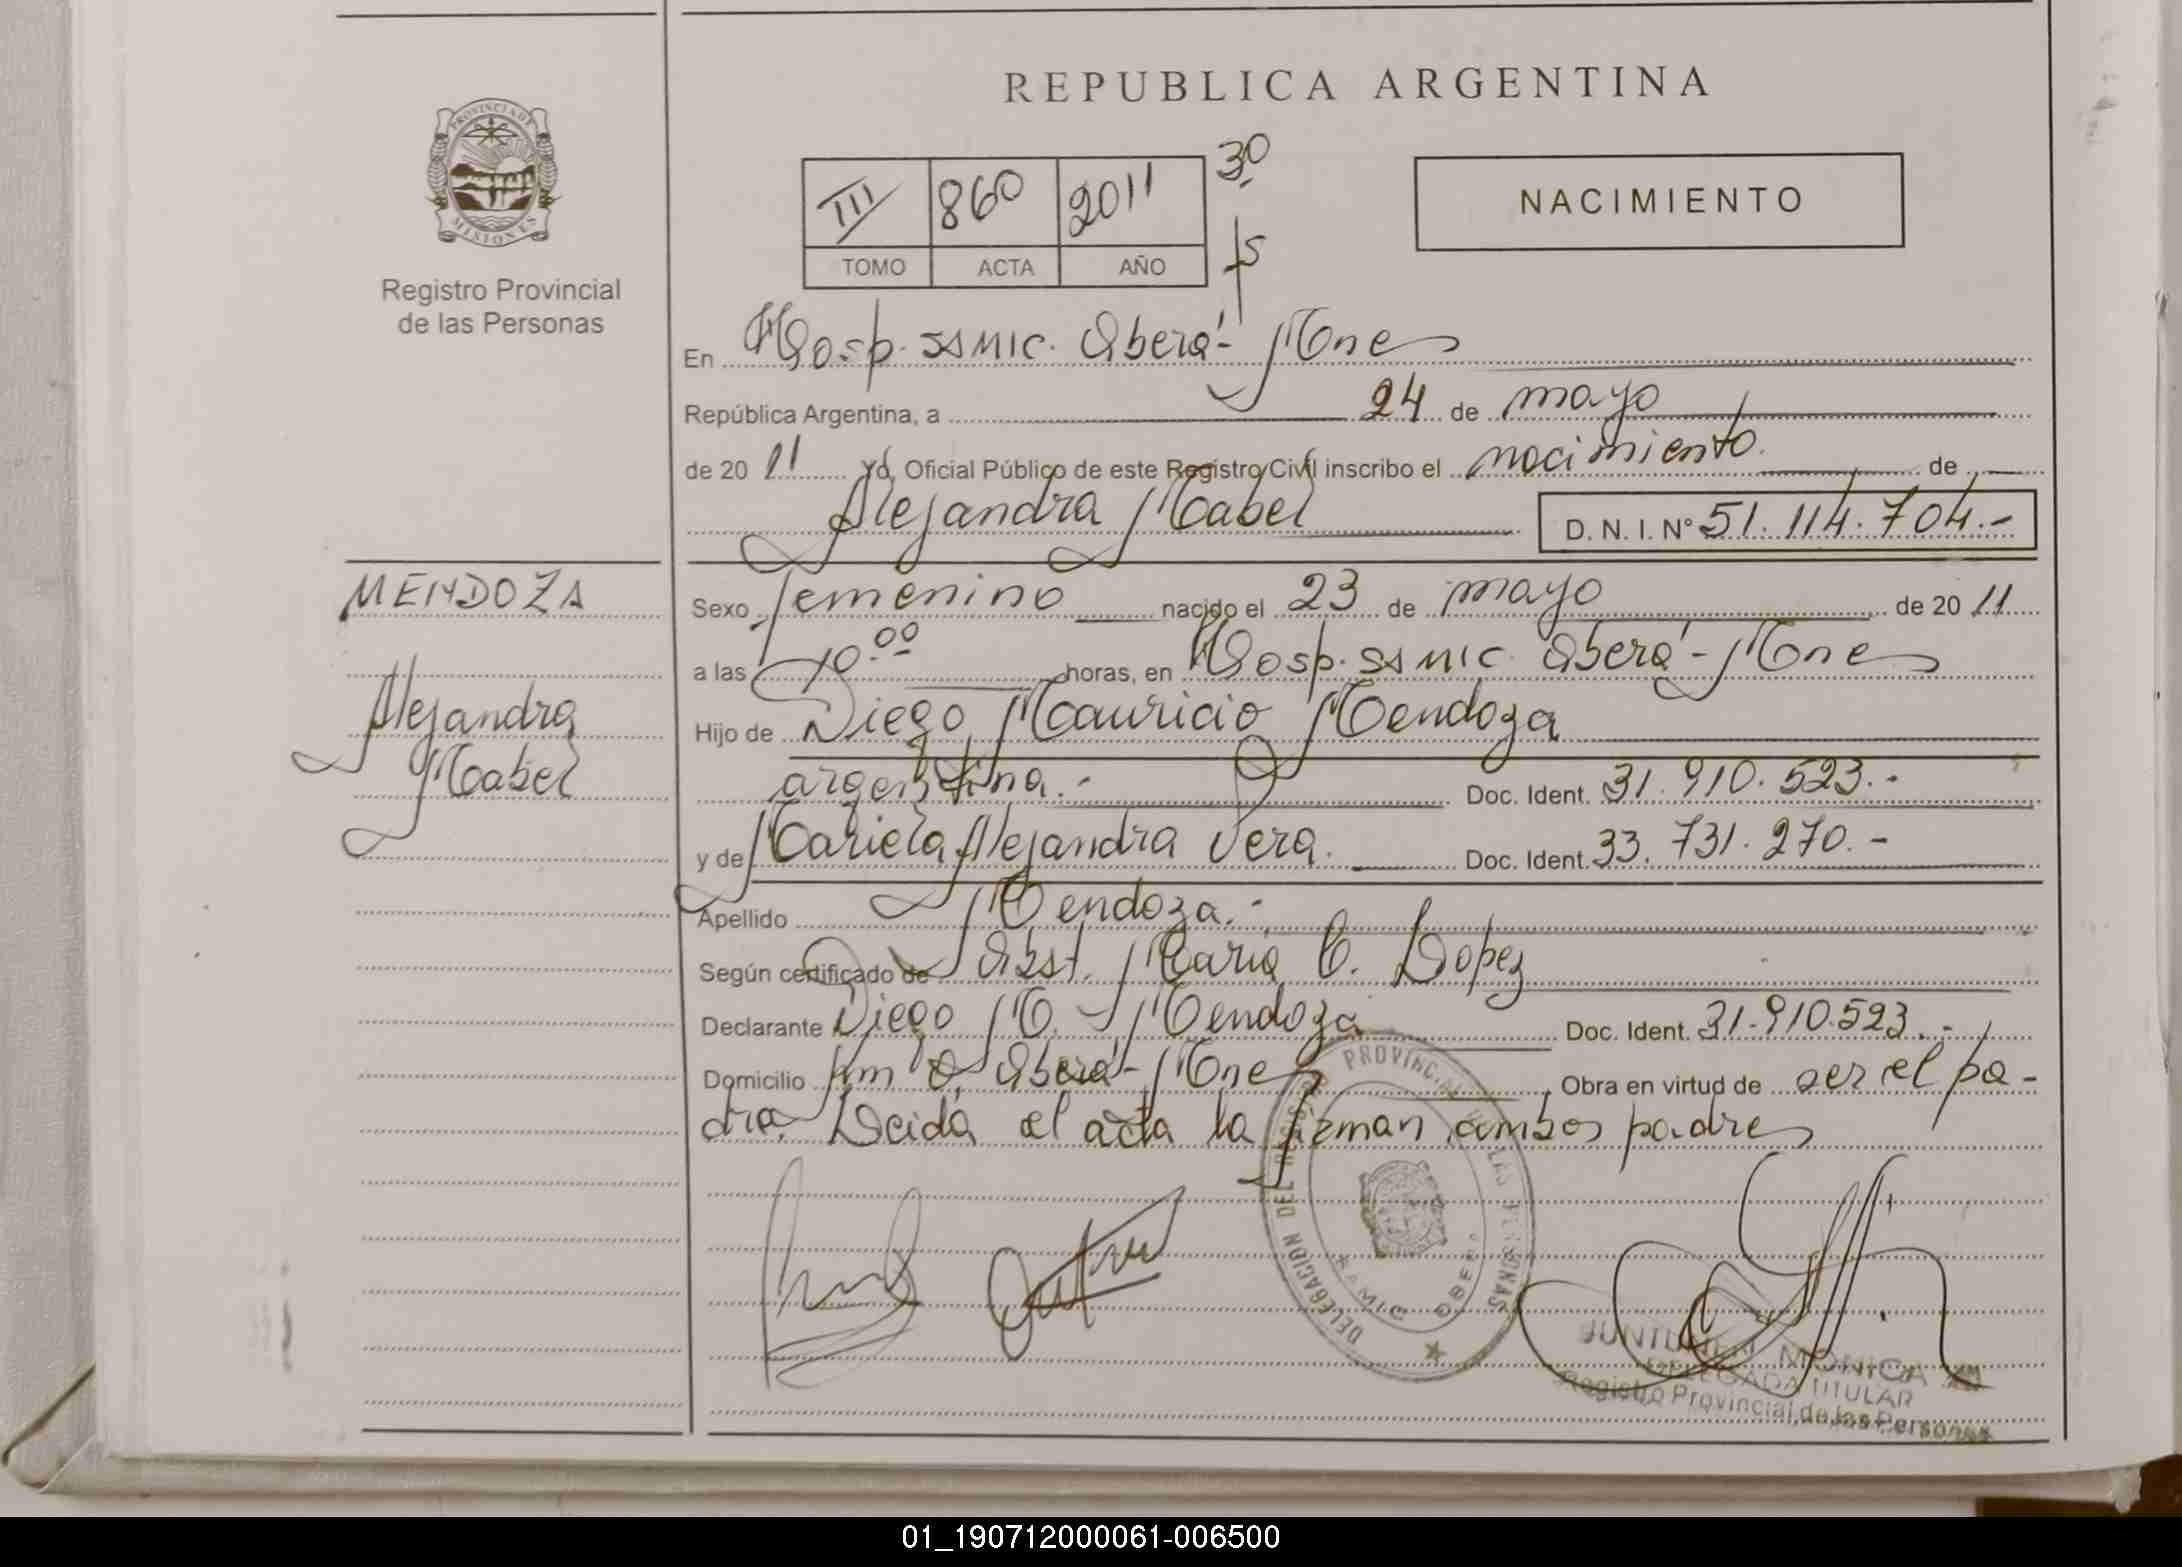 REPUBLICA ARGENTINA
PROVINCIA DE
MISIONES
Registro Provincial
de las Personas
III 860 2011 30
TOMO ACTA AÑO 15
NACIMIENTO
En Hosp. SSMIC. Oberá - Mnes
República Argentina, a 24 de mayo
de 2011 Yo, Oficial Público de este Registro Civil inscribo el nacimiento de
Alejandra Mabel D. N. I. N° 51.114.704.-
MENDOZA
Alejandra
Mabel
Sexo femenino nacido el 23 de mayo de 2011
a las 10.00 horas, en Hosp. SSMIC. Oberá - Mnes
Hijo de Diego Mauricio Mendoza
argentina.- Doc. Ident. 31.910.523.-
y de Mariela Alejandra Vera. Doc. Ident. 33.731.270.-
Apellido Mendoza.-
Según certificado de Obst. Maria C. Lopez
Declarante Diego M. Mendoza Doc. Ident. 31.910.523.-
Domicilio Km 8, Oberá - Mnes Obra en virtud de ser el pa-
dre. Leida el acta la firman ambos padres
DELEGACION DEL REGISTRO PROVINCIAL DE LAS PERSONAS
SAMIC OBERA
JUNTUNEN MONICA
DELEGADA TITULAR
Registro Provincial de las Personas
01_190712000061-006500